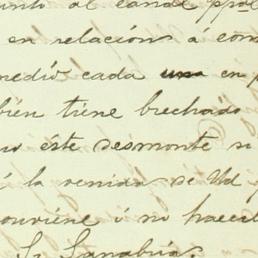 unto al canal ppal
en relación á com
medió cada una en p
bién tiene brechado
este desmonte si
á la venida de Ud p
conviene ó no hacerl
Sr Sanabria.